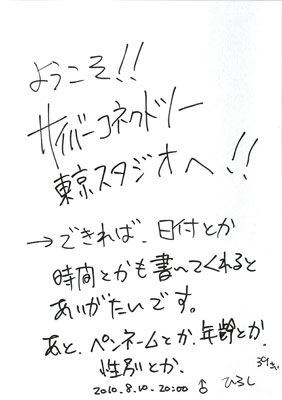 ようこそ!!
サイバーコネクトツー
東京スタジオへ!!
→できれば、日付とか
時間とかも書いてくれると
ありがたいです。
あと、ペンネームとか、年齢とか、
性別とか、
2010.8.10.20:00 ♂ ひろし 39さい